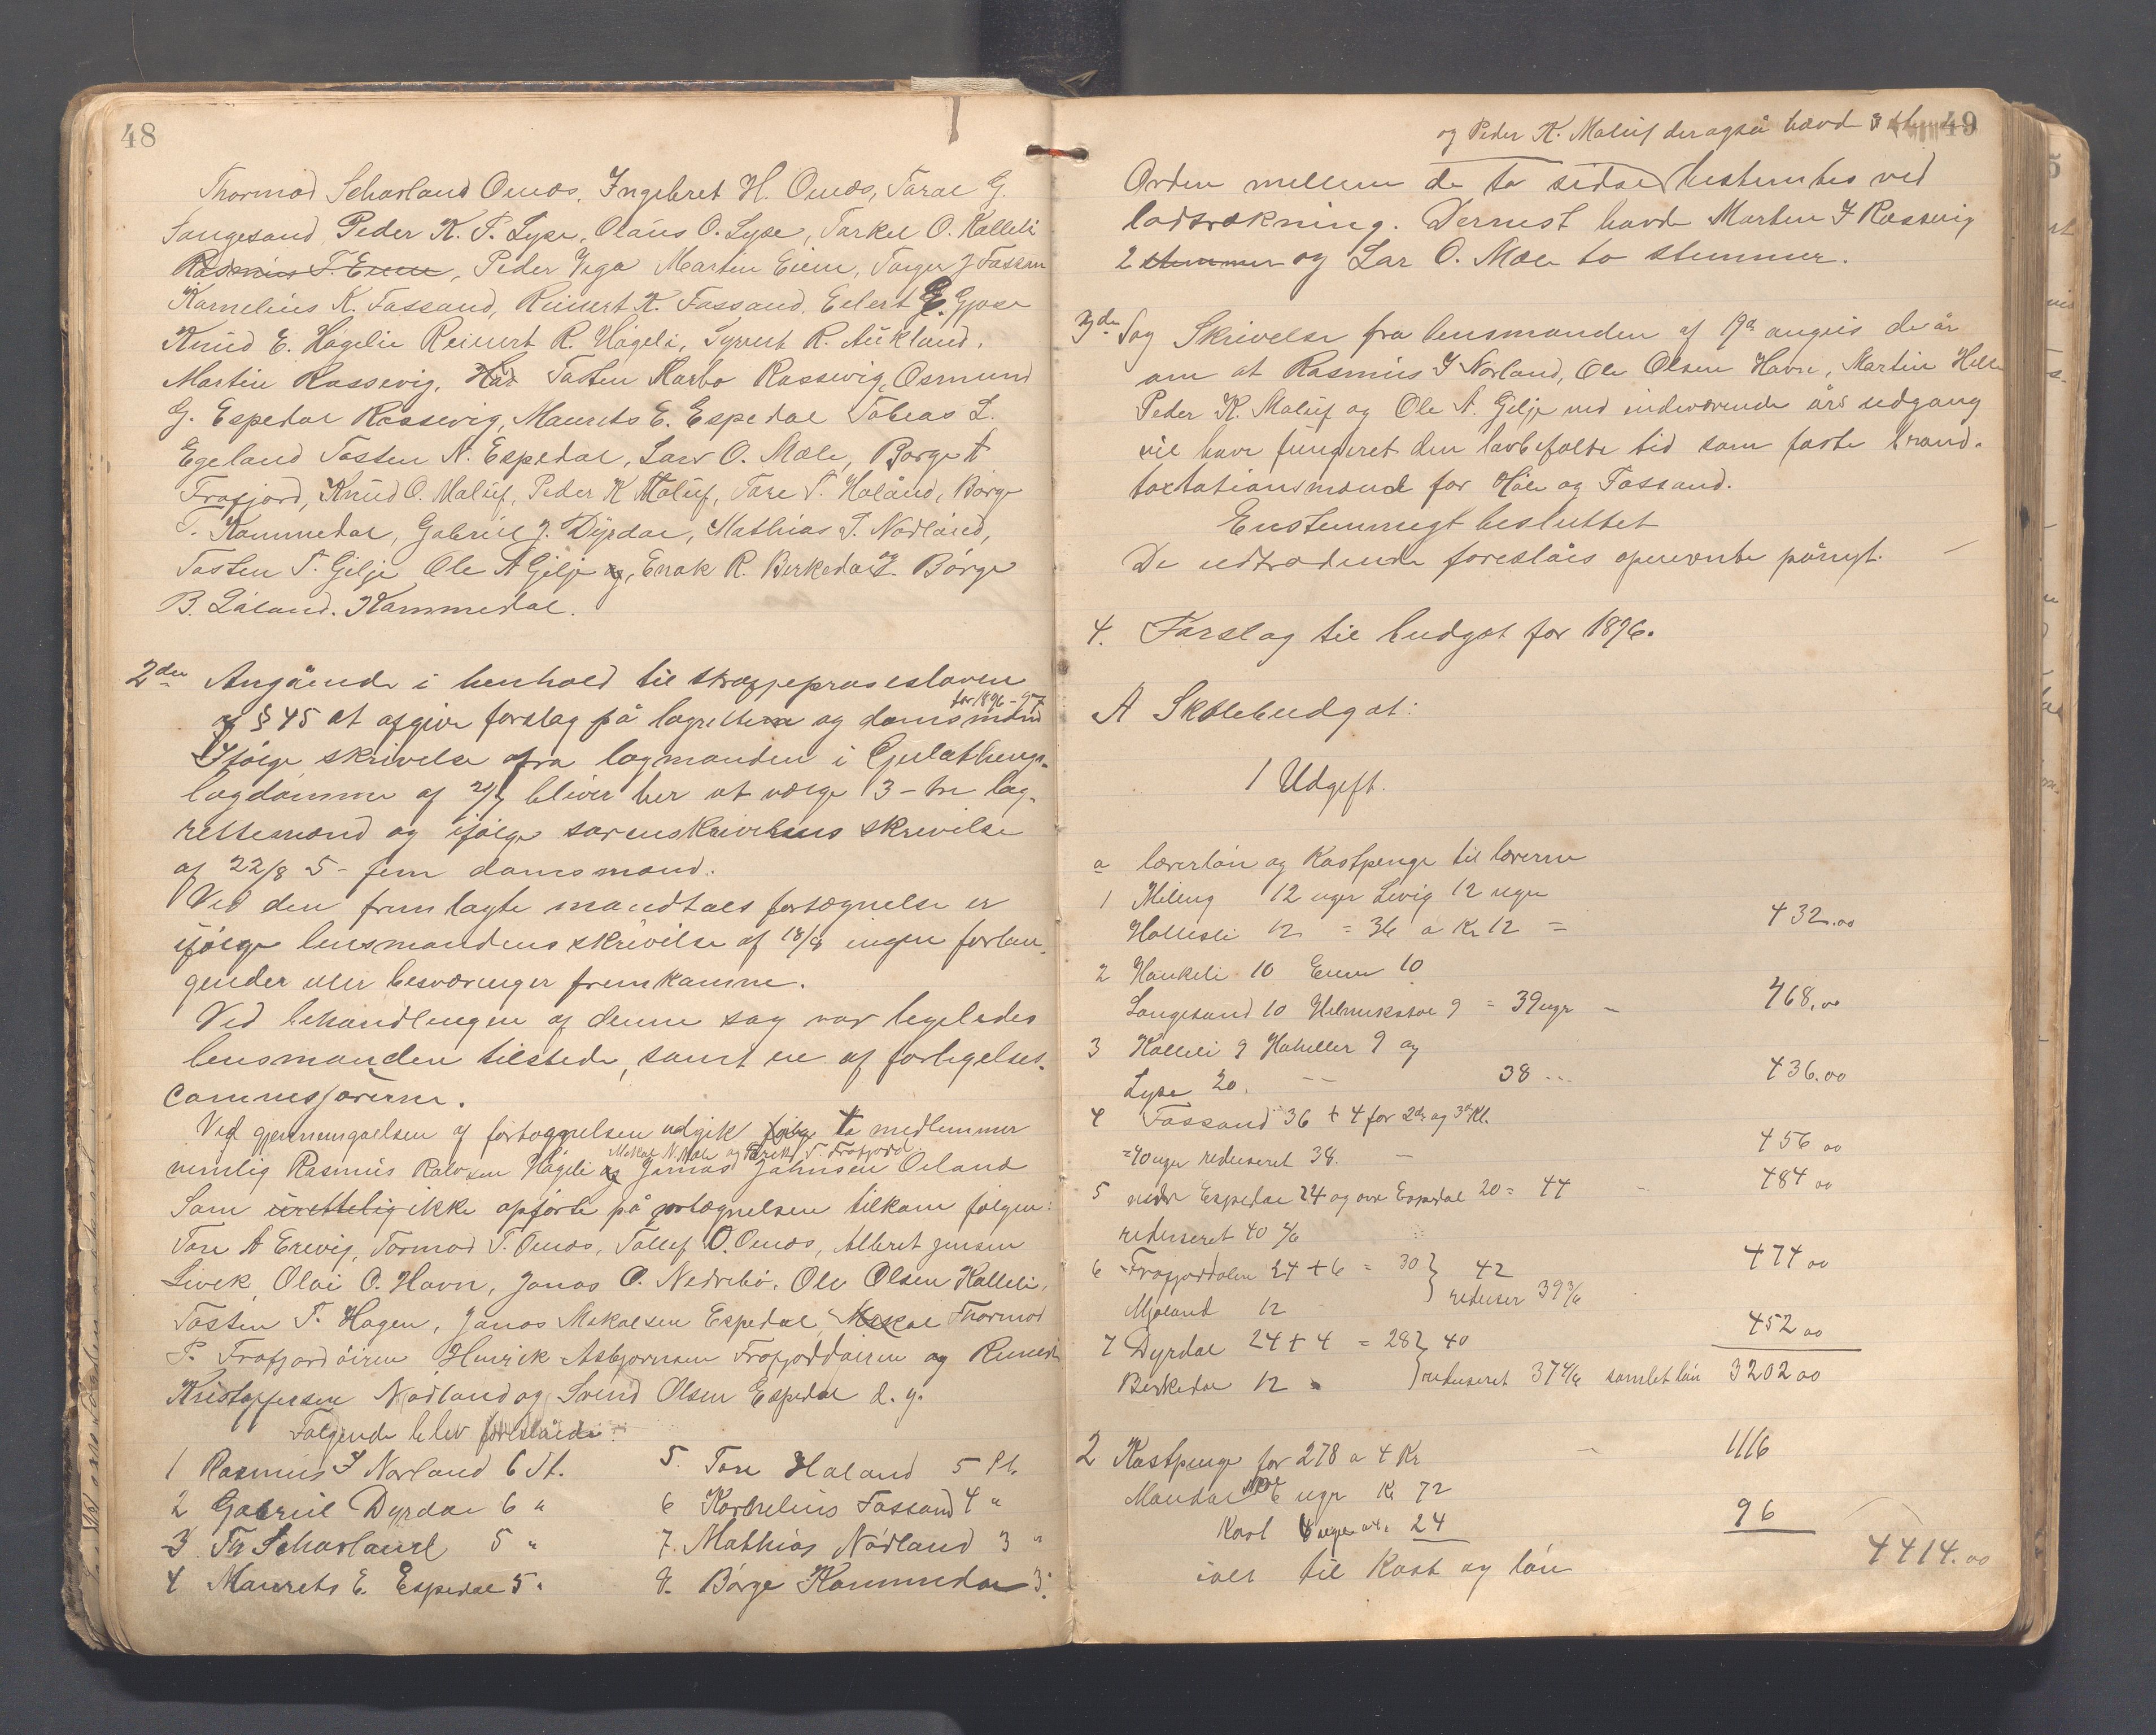 48
Thormod Scharland Onæs, Ingebret H. Onæs, Taral G.
Songesand Peder K. T. Lyse, Olaus O. Lyse, Torkel O. Kalleli
Rasmus T. Eiene, Peder Vega Martin Eiene, Torger J Fossan
Kornelius K. Fossand, Reinert K. Fossand, Eilert E. Gjøse
Knud E. Høgelie Reinert R. Høgeli, Syvert R. Aukland,
Martin Rossevig, Tosten Karbo Rossevig, Osmund
G. Espedal Rossevig, Maurits E. Espedal Tobias L.
Egeland Tosten N. Espedal, Lars O. Mæle, Børge T
Frafjord, Knud O. Maluf, Peder K Maluf, Tore T. Haland, Børge
T. Kommedal, Gabriel J. Dyrdal, Mathias T. Nødland,
Tosten T. Gilje Ole A Gilje og, Enok R. Birkedal og Børge
B. Kommedal.
2den Angående i henhold til straffeproseslovens
af § 45 at afgive forslag på lagrettem og domsmænd
for 1896-97
Ifølge skrivelse fra lagmanden i Gulathings-
lagdømme af bliver her at vælge 3 - tre lag-
rettemænd og ifølge sorenskriverens skrivelse
af 22/8 5 - fem domsmænd.
Ved den fremlagte mandtals fortegnelse er
ifølge lensmandens skrivelse af 18/9 ingen forlan-
gender eller besværinger fremkomne.
Ved behandlingen af denne sag var ligeledes
lensmanden tilstede, samt en af forligelses-
commisjærerne.
Ved gjennemgaelsen af fortegnelsen udgik to medlemmer
Mekal N. Mæle og Eirik T. Frafjord
nemlig Rasmus Høgeli og Jonas Johnsen Øiland
Som urettelig ikke opførte på fortegnelsen tilkom følgen:
Tore A Erevig, Tormod T. Onæs, Tollef O. Onæs, Albret Jensen
Livek, Olai O. Havn, Jonas O. Nedrebø, Ole Olsen Kalleli,
Tosten T. Hagen, Jonas Mekalsen Espedal, Thormod
P. Frafjordøiren Henrik Asbjørnsen Frafjordøiren og
Kristoffersen Nødland og Svend Olsen Espedal d. y.
Følgende blev foreslåede:
1 Rasmus I Norland 6 St.
2 Gabriel Dyrdal 6 "
3 Th Scharland 5 "
4 Maurets E Espedal 5 "
5. Tore Haland 5 St.
6 Kornelius Fossand 4 "
7. Mathias Nødland 3 "
8. Børge Kommedal 3.
49
og Peder K. Maluf der også havde 3
Orden mellem de to sidste bestemtes ved
lodtrækning. Dernest havde Morten I Rossevig
2 stemmer og Lar O. Mæle to stemmer.
3de Sag Skrivelse fra lensmanden af 19de augus de år
om at Rasmus I Norland, Ole Olsen Havn, Martin Helle
Peder K. Maluf og Ole A. Gilje ved indeværende års udgang
vil have fungeret den lovbefalte tid som faste brand-
taxtationsmænd for Høle og Fossand.
Enstemmigt besluttet
De udtrædende foreslåes opnevnte pånyt. -
4. Forslag til budget for 1896.
A Skolebudget:
1 Udgift.
a lærerløn og Kostpenge til lærerne
1 Meling 12 uger Levig 12 uger
Hollesli 12 = 36 a Kr 12 = 432.00
2 Haukeli 10 Eiene 10
Songesand 10 9 = 39 uger - 468.00
3 Kalleli 9 Hatteller 9 og
Lyse 20. - - 38 ... 436.00
4 Fossand 36 + 4 for 2de og 3de Kl.
= 40 uger reduseret 38. - 456 00
5 nedre Espedal 24 og øvre Espedal 20 = 44 - 484 00
reduseret 40 2/6
6 Frafjorddalen 24 + 6 = 30 } 42 474 00
Mjåland 12 } reduser 39 3/6
7 Dyrdal 24 + 4 = 28 } 40 452 00
Birkedal 12 } reduseret 37 4/6 samlet løn 3202 00
2 Kostpenge for 278 a 4 Kr - 1116
Maudal 6 uger Kr 72
Kost 6 uger a 4. 24 96
ialt til Kost og løn 4414.00